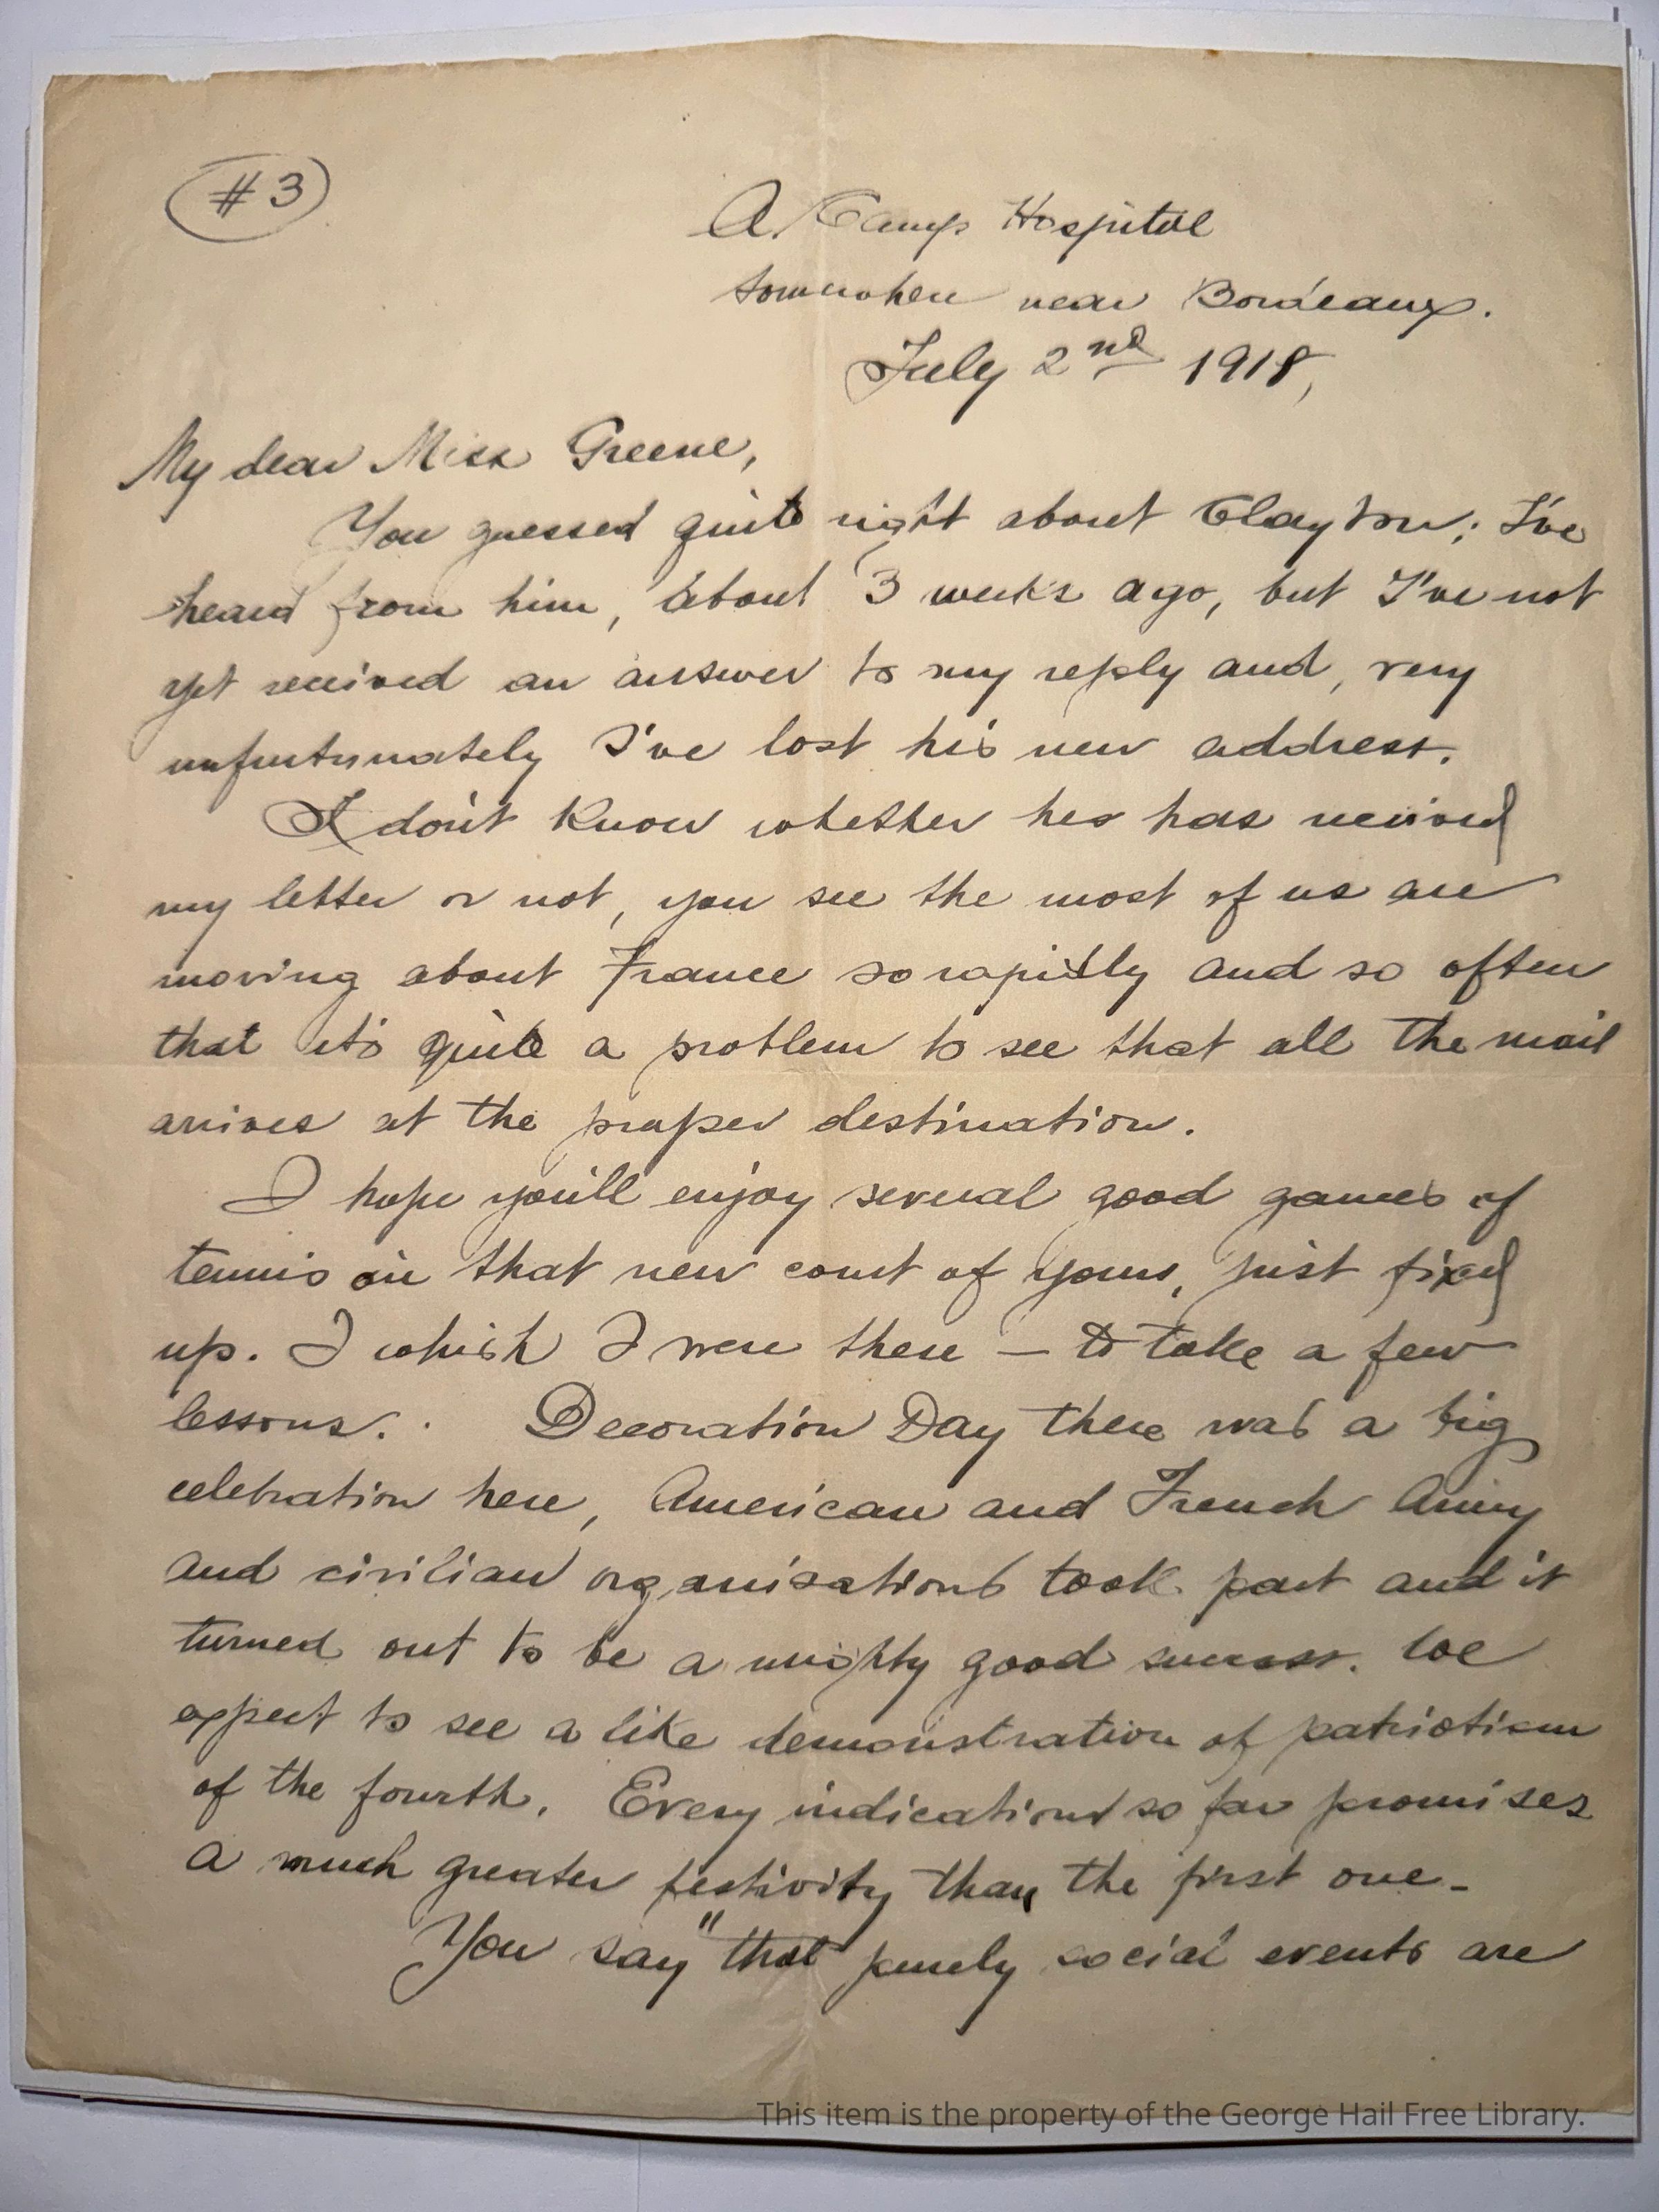 #3
A Camp Hospital
Somewhere near Bordeaux.
July 2nd 1918,
My dear Miss Greene,
You guessed quite right about Clayton; I've
heard from him, about 3 weeks ago, but I've not
yet received an answer to my reply and, very
unfurtunately I've lost his new address.
I don't know whether hes has received
my letter or not, you see the most of us are
moving about France so rapidly and so often
that it's quite a problem to see that all the mail
arrives at the proper destination.
I hope you'll enjoy several good games of
tennis on that new court of yours, just fixed
up. I whish I were there — to take a few
lessons. . Decoration Day there was a big
celebration here, American and French Army
and civilian organisations took part and it
turned out to be a mighty good success. We
expect to see a like demonstration of patriotism
of the fourth. Every indications so far promises
a much greater festivity than the first one -
You say "that purely social events are
This item is the property of the George Hail Free Library.